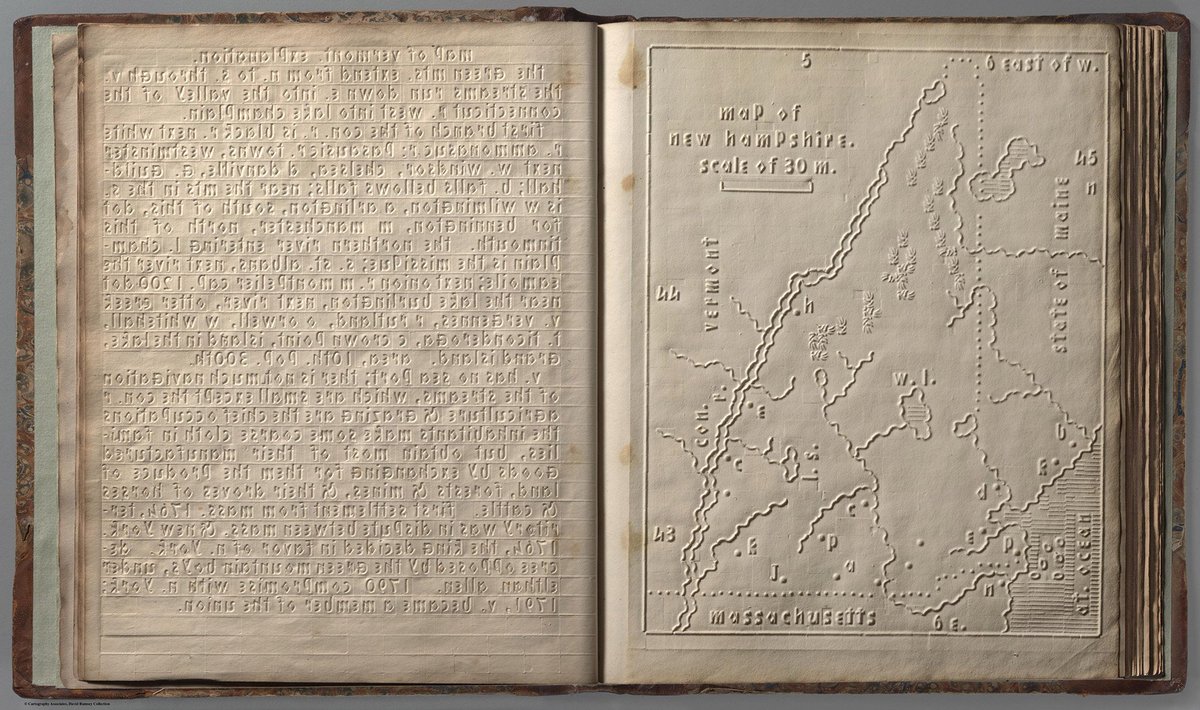 map of vermont. explanation.
the green mts. extend from n. to s. through v.
the streams run down e. into the valley of the
connecticut r. west into lake champlain.
first branch of the con. r. is black r. next white
r. towns, westminster
next w. windsor, chelsea, d danville, g. guild-
hall; b. falls bellows falls; near the mts in the s.
is w wilmington, a arlington, south of this, dot
for bennington, m manchester, north of this
tinmouth. the northern river entering l. cham-
plain is the missique; s. st. albans, next river the
lamoile; next onion r. m montpelier cap. 1200 dot
near the lake burlington, next river, otter creek
v. vergennes, r rutland, o orwell, w whitehall,
t. ticonderoga, c crown point, island in the lake,
grand island. area, 10th. pop. 300th.
v. has no sea port; ther is not much navigation
of the streams, which are small except the con. r
agriculture & grazing are the chief occupations
the inhabitants make some coarse cloth in fami-
lies, but obtain most of their manufactured
goods by exchanging for them the produce of
land, forests & mines, & their droves of horses
& cattle. first settlement from mass. 1764, ter-
ritory was in dispute between mass. & new york.
1764, the king decided in favor of n. york. de-
cree opposed by the green mountain boys, under
ethan allen. 1790 compromise with n. york:
1791, v. became a member of the union.
5
6 east of w.
map of
new hampshire.
scale of 30 m.
45
n
state of maine
vermont
44
h
w. l.
con. r.
g
c
l. s.
b
k
d
43
c
k
p
e
p
a
J.
n
at. ocean
massachusetts
6 E.
© Cartography Associates, David Rumsey Collection